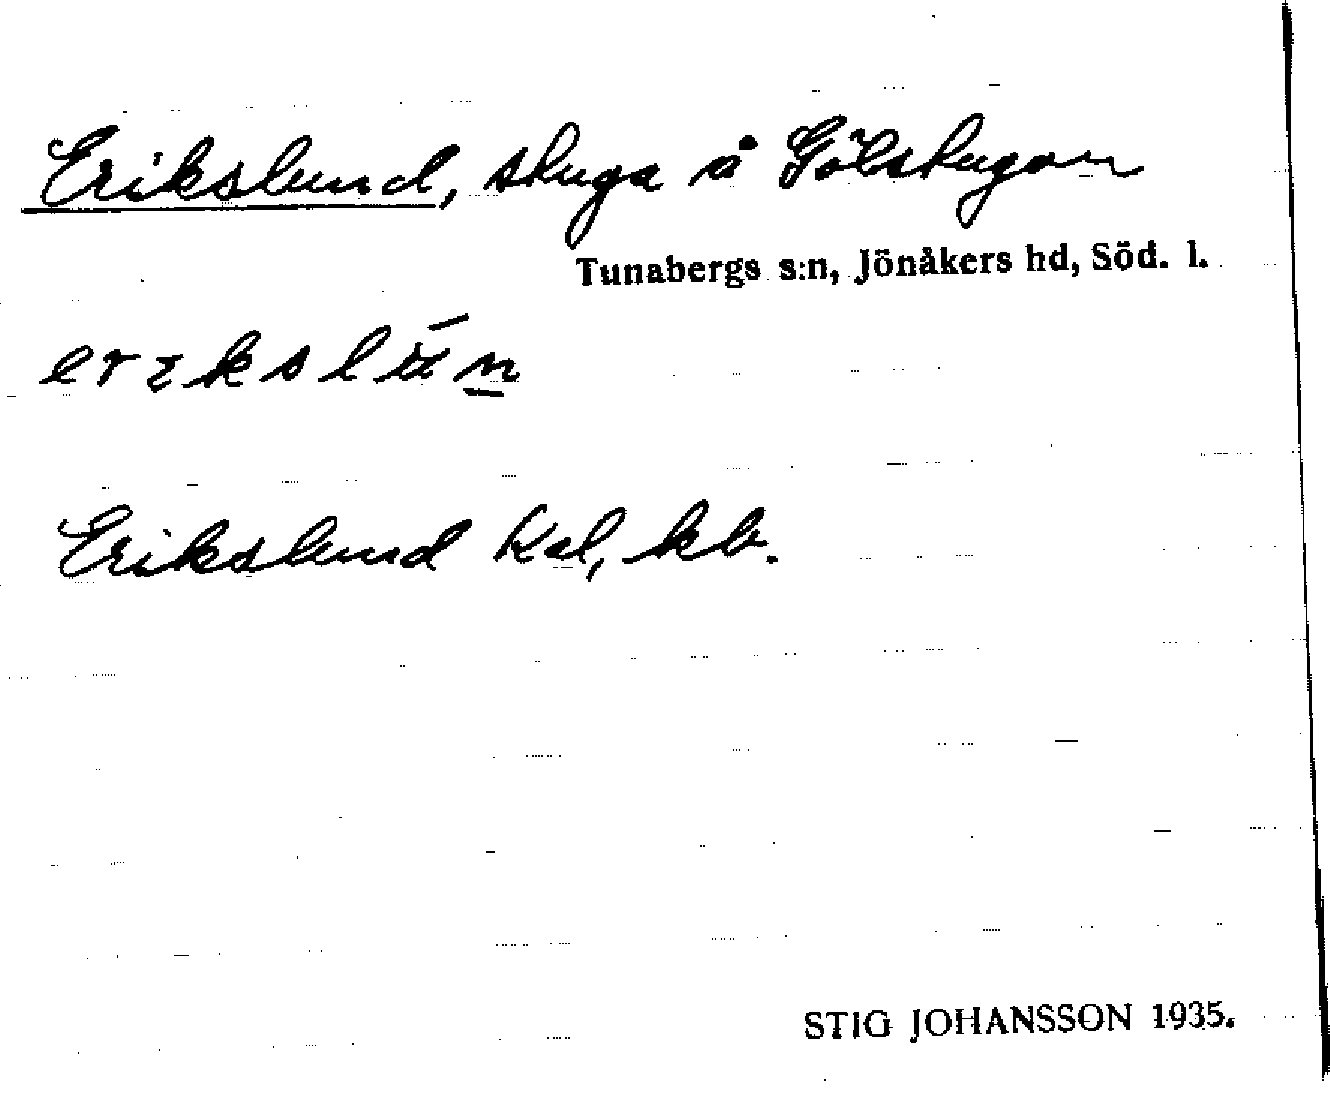 Erikslund, stuga å Gölstugan
Tunabergs s:n, Jönåkers hd, Söd. l.
Erikslund Kal, kb.
STIG JOHANSSON 1935.